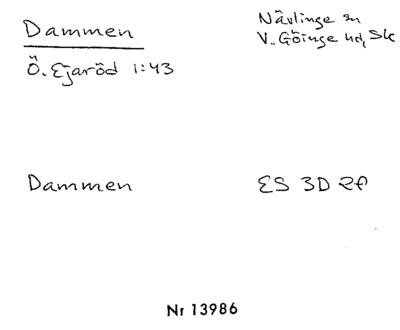 Dammen
Nävlinge sn
V. Göinge hd, Sk
Ö. Ejaröd 1:43
Dammen
ES 3D 2f
Nr 13986